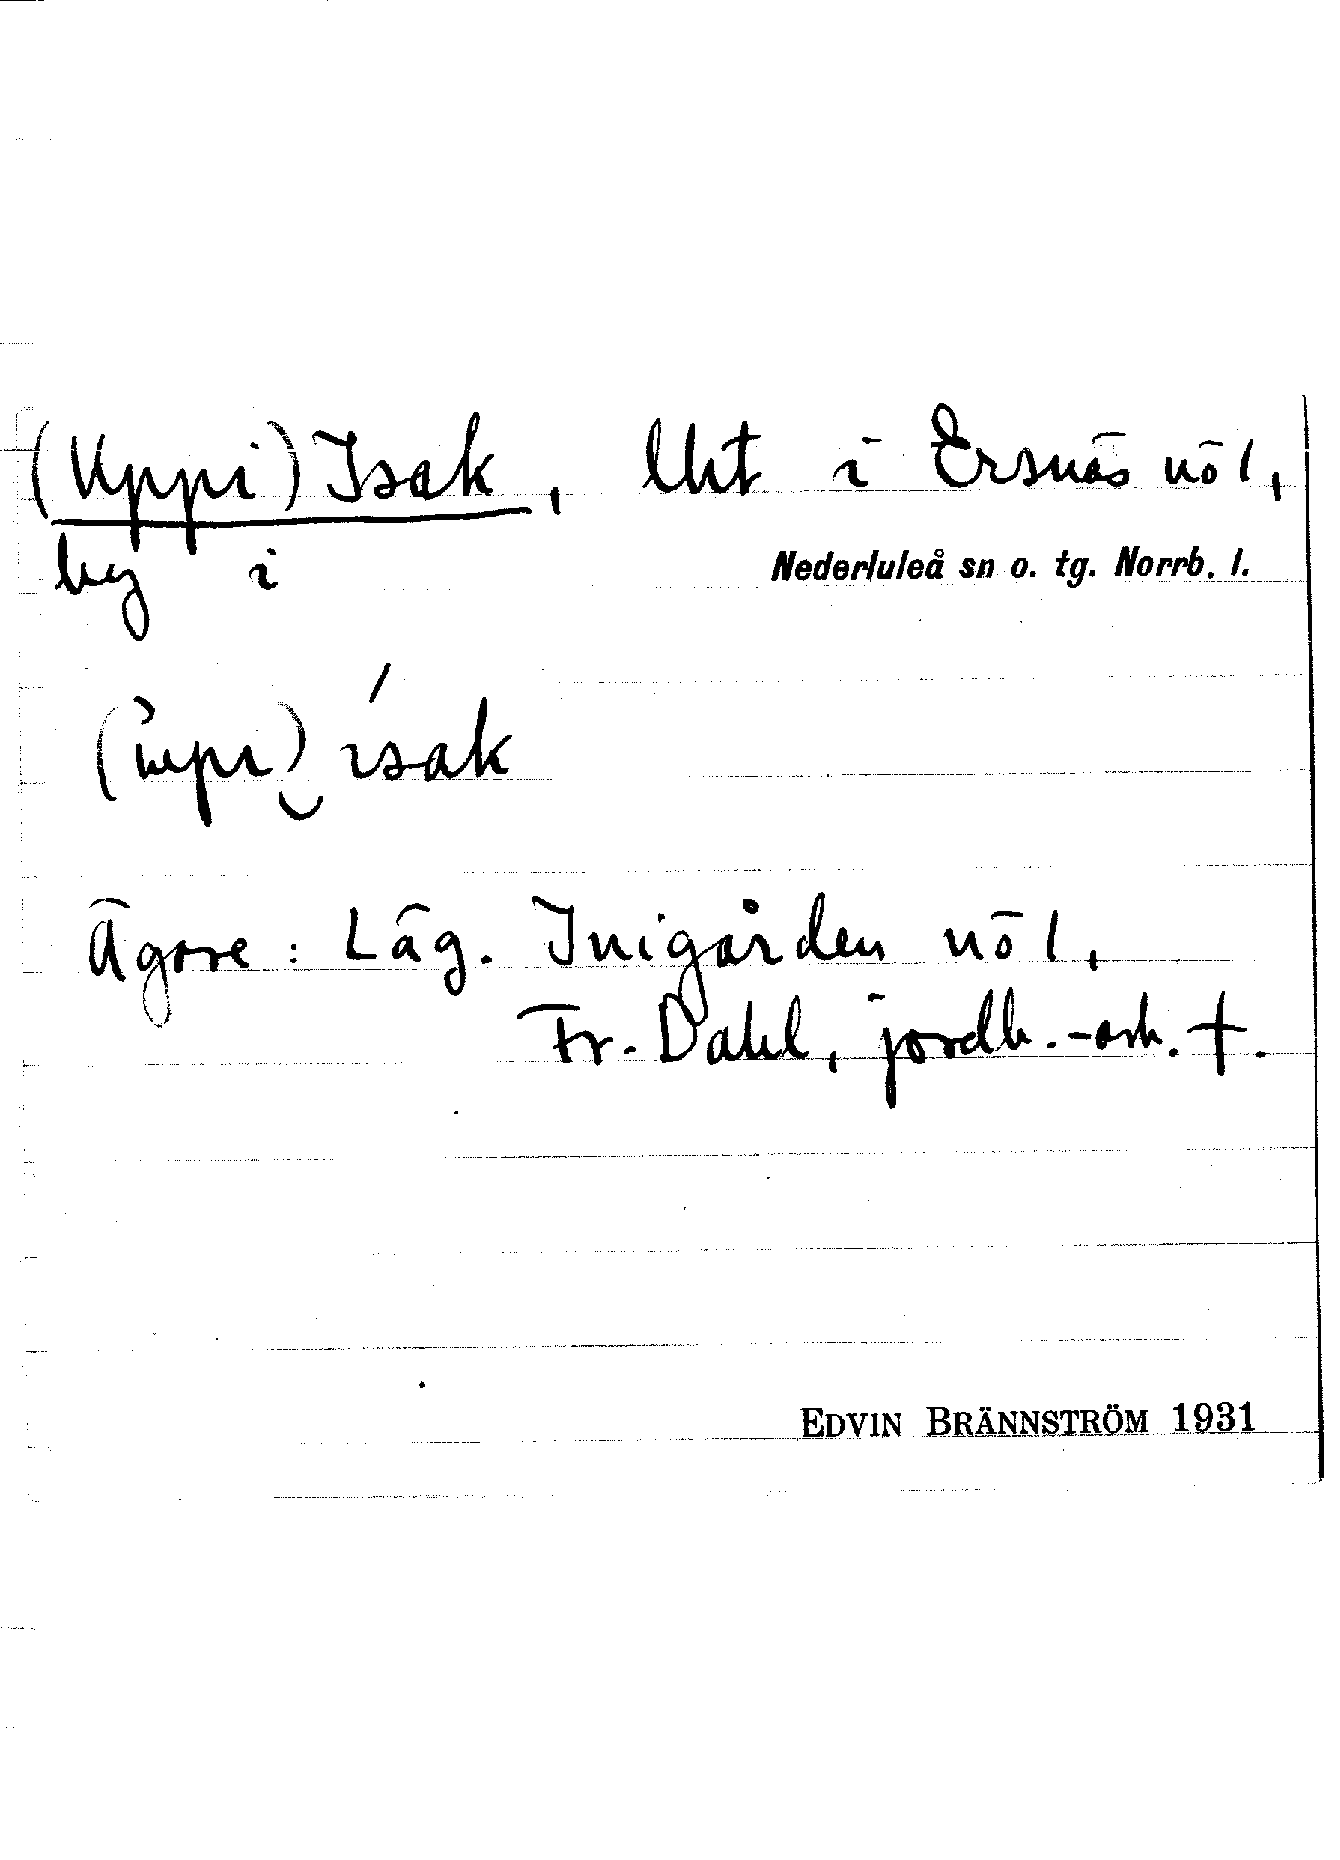 (Uppi) Isak, lht i Ersnäs nö 1,
by i Nederluleå sn o. tg. Norrb. l.
(upi) isak
Ägare: Läg. Inigården nö 1,
Fr. Dahl, jordb.-arb. †.
EDVIN BRÄNNSTRÖM 1931